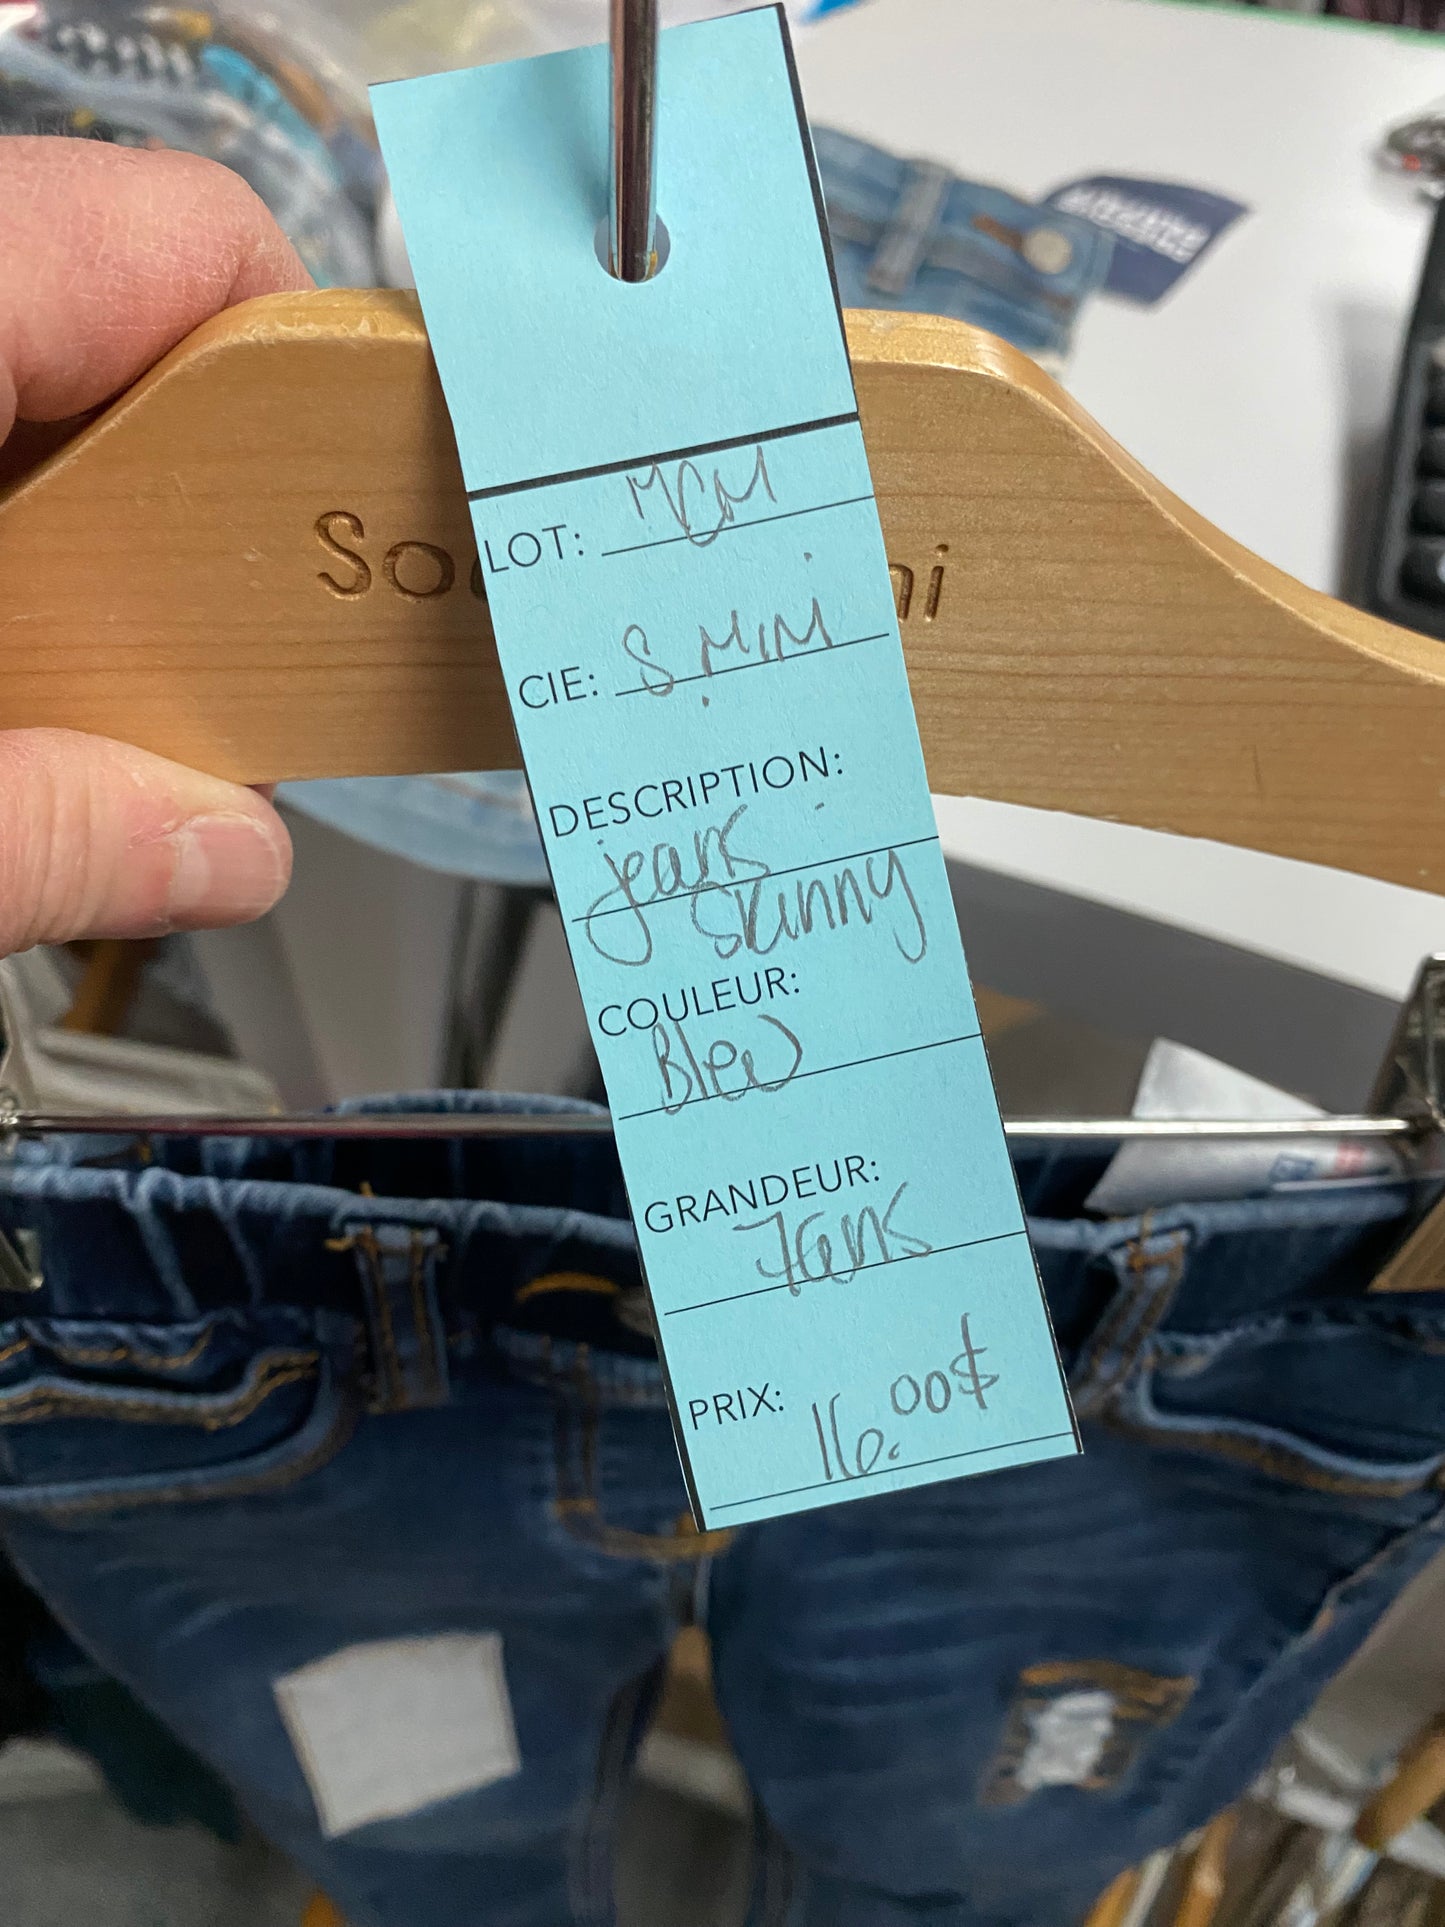 LOT: MCM
CIE: S. MIM
DESCRIPTION:
jeans
skinny
COULEUR:
Bleu
GRANDEUR:
7ans
PRIX: 16.00$